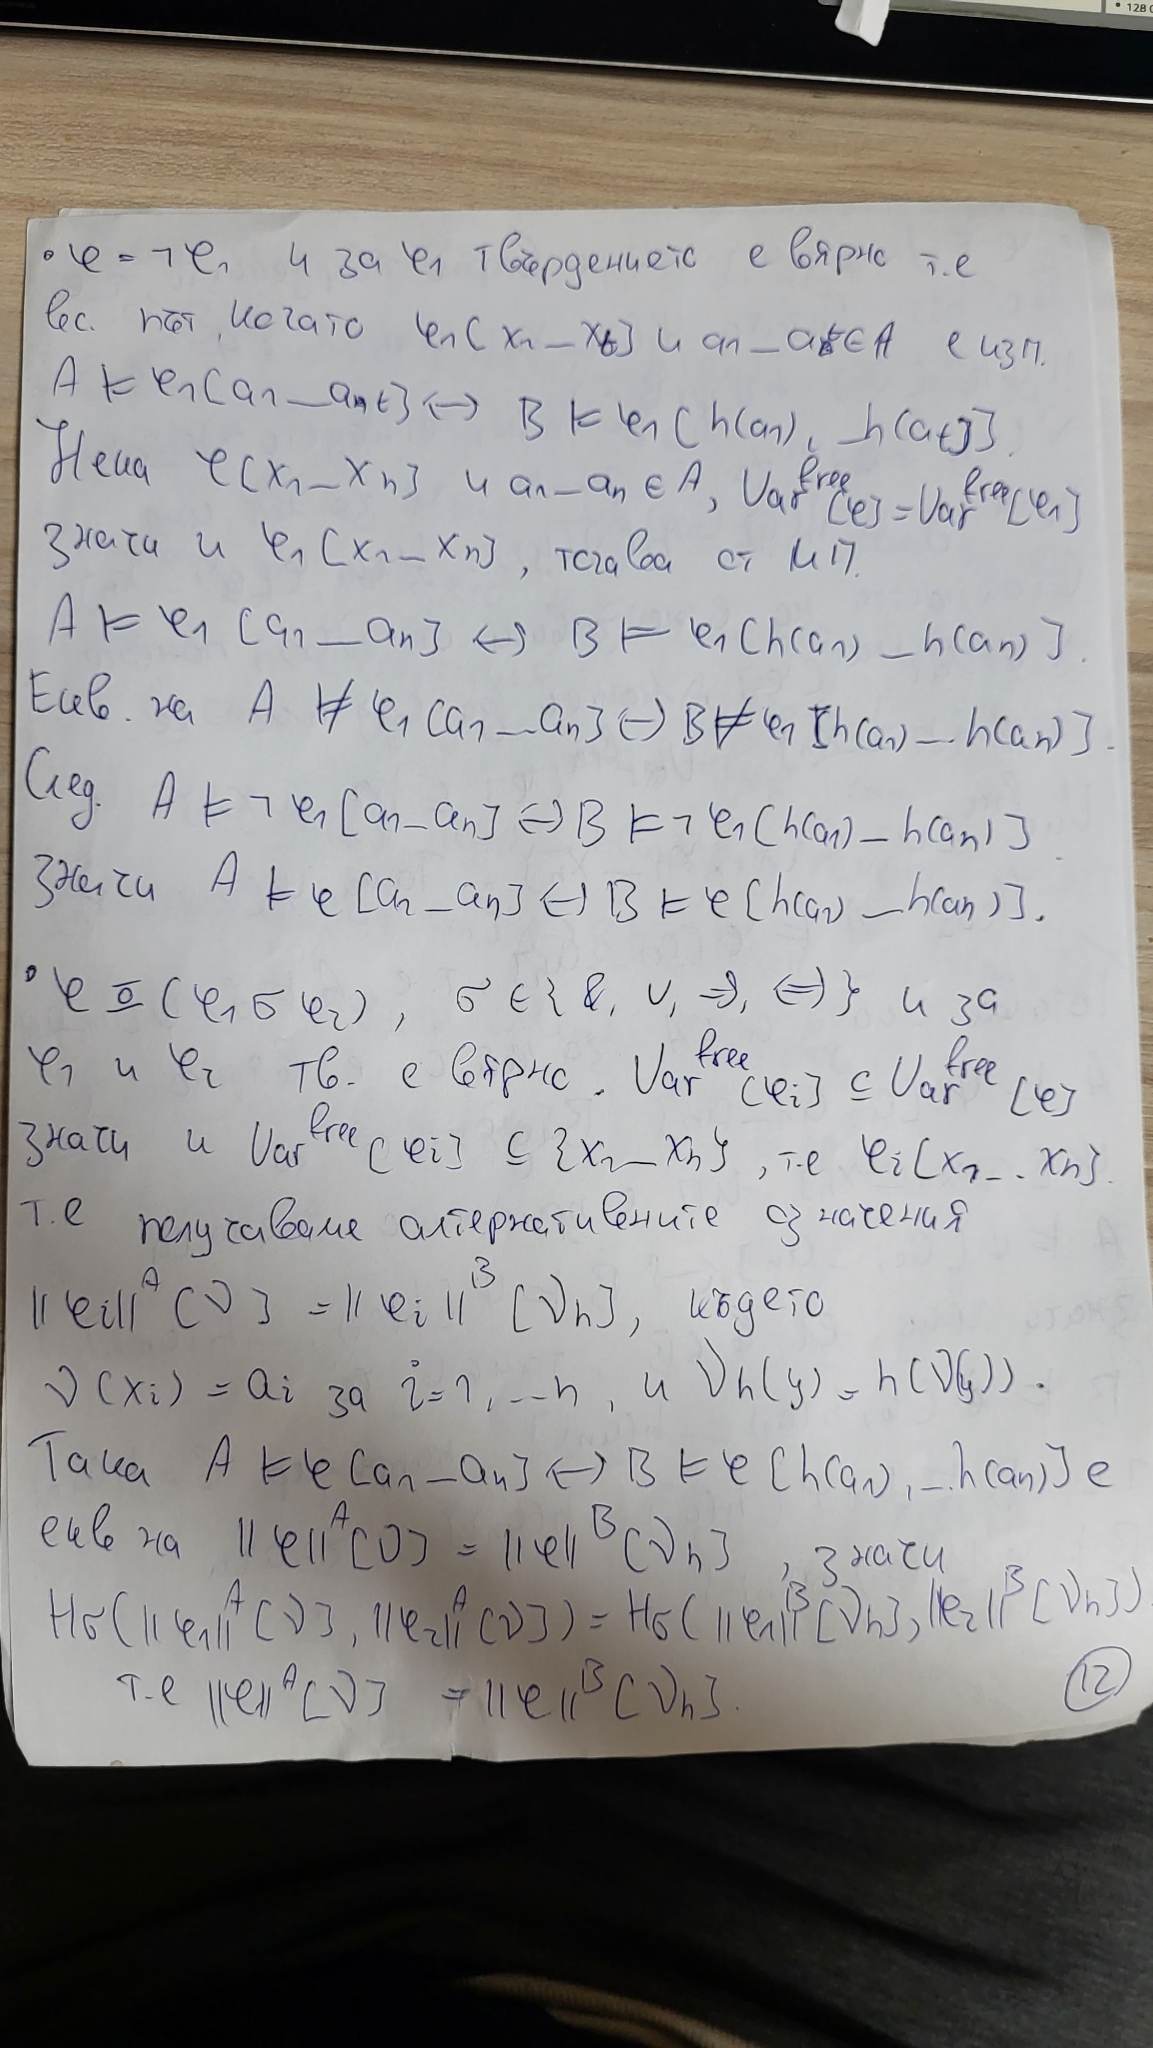 • φ = ¬φ₁ и за φ₁ твърдението е вярно т.е
вс. път, когато φ₁[x₁ _ xₜ] и a₁ _ aₜ ∈ A е изп.
A ⊨ φ₁[a₁ _ aₜ] ↔ B ⊨ φ₁[h(a₁), _h(aₜ)].
Нека φ[x₁ _ xₙ] и a₁ _ aₙ ∈ A, Var^free[φ] = Var^free[φ₁]
значи и φ₁[x₁ _ xₙ], тогава от ИП.
A ⊨ φ₁[a₁ _ aₙ] ↔ B ⊨ φ₁[h(a₁) _ h(aₙ)].
Екв. на A ⊭ φ₁[a₁ _ aₙ] ↔ B ⊭ φ₁[h(a₁) _ h(aₙ)].
След. A ⊨ ¬φ₁[a₁ _ aₙ] ↔ B ⊨ ¬φ₁[h(a₁) _ h(aₙ)]
значи A ⊨ φ[a₁ _ aₙ] ↔ B ⊨ φ[h(a₁) _ h(aₙ)].
• φ ≖ (φ₁ σ φ₂), σ ∈ {&, ∨, ⇒, ⇔} и за
φ₁ и φ₂ тв. е вярно. Var^free[φᵢ] ⊆ Var^free[φ]
значи и Var^free[φᵢ] ⊆ {x₁ _ xₙ}, т.е φᵢ[x₁ _ . xₙ].
т.е получаваме алтернативените означения
||φᵢ||^A[ν] = ||φᵢ||^B[νₕ], където
ν(xᵢ) = aᵢ за i = 1, ... n, и νₕ(y) = h(ν(y)).
Така A ⊨ φ[a₁ _ aₙ] ↔ B ⊨ φ[h(a₁), _ h(aₙ)] е
екв на ||φ||^A[ν] = ||φ||^B[νₕ], значи
Hσ(||φ₁||^A[ν], ||φ₂||^A[ν]) = Hσ(||φ₁||^B[νₕ], ||φ₂||^B[νₕ])
т.е ||φ||^A[ν] = ||φ||^B[νₕ].
12